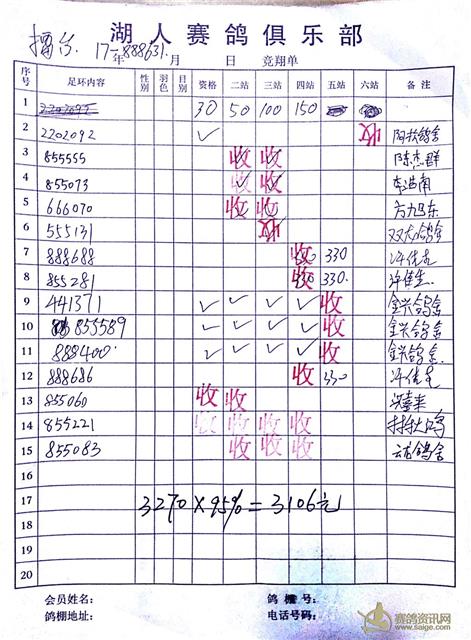 湖人赛鸽俱乐部
擂台 17-888631.
年 月 日 竞翔单
序号 足环内容 性别 羽色 日别 资格 二站 三站 四站 五站 六站 备注
1 30 50 100 150
2 2202092 ✓ 收
3 855555 收 收 陈杰群
4 855073 收 收
5 666070 收 收
6 555131 收 双大鸽舍
7 888688 收 330
8 855281 收 330
9 441371 ✓ ✓ ✓ ✓ 收 金兴鸽舍
10 855589 ✓ ✓ ✓ ✓ 收 金兴鸽舍
11 888400 ✓ ✓ ✓ ✓ 收 金兴鸽舍
12 888686 收 330
13 855060 收 收
14 855221 收 收 收 收
15 855083 收 收 收 云龙鸽舍
16
17 3270×95%=3106元
18
19
20
会员姓名: 鸽棚号:
鸽棚地址: 电话号码:
赛鸽资讯网
www.saige.com